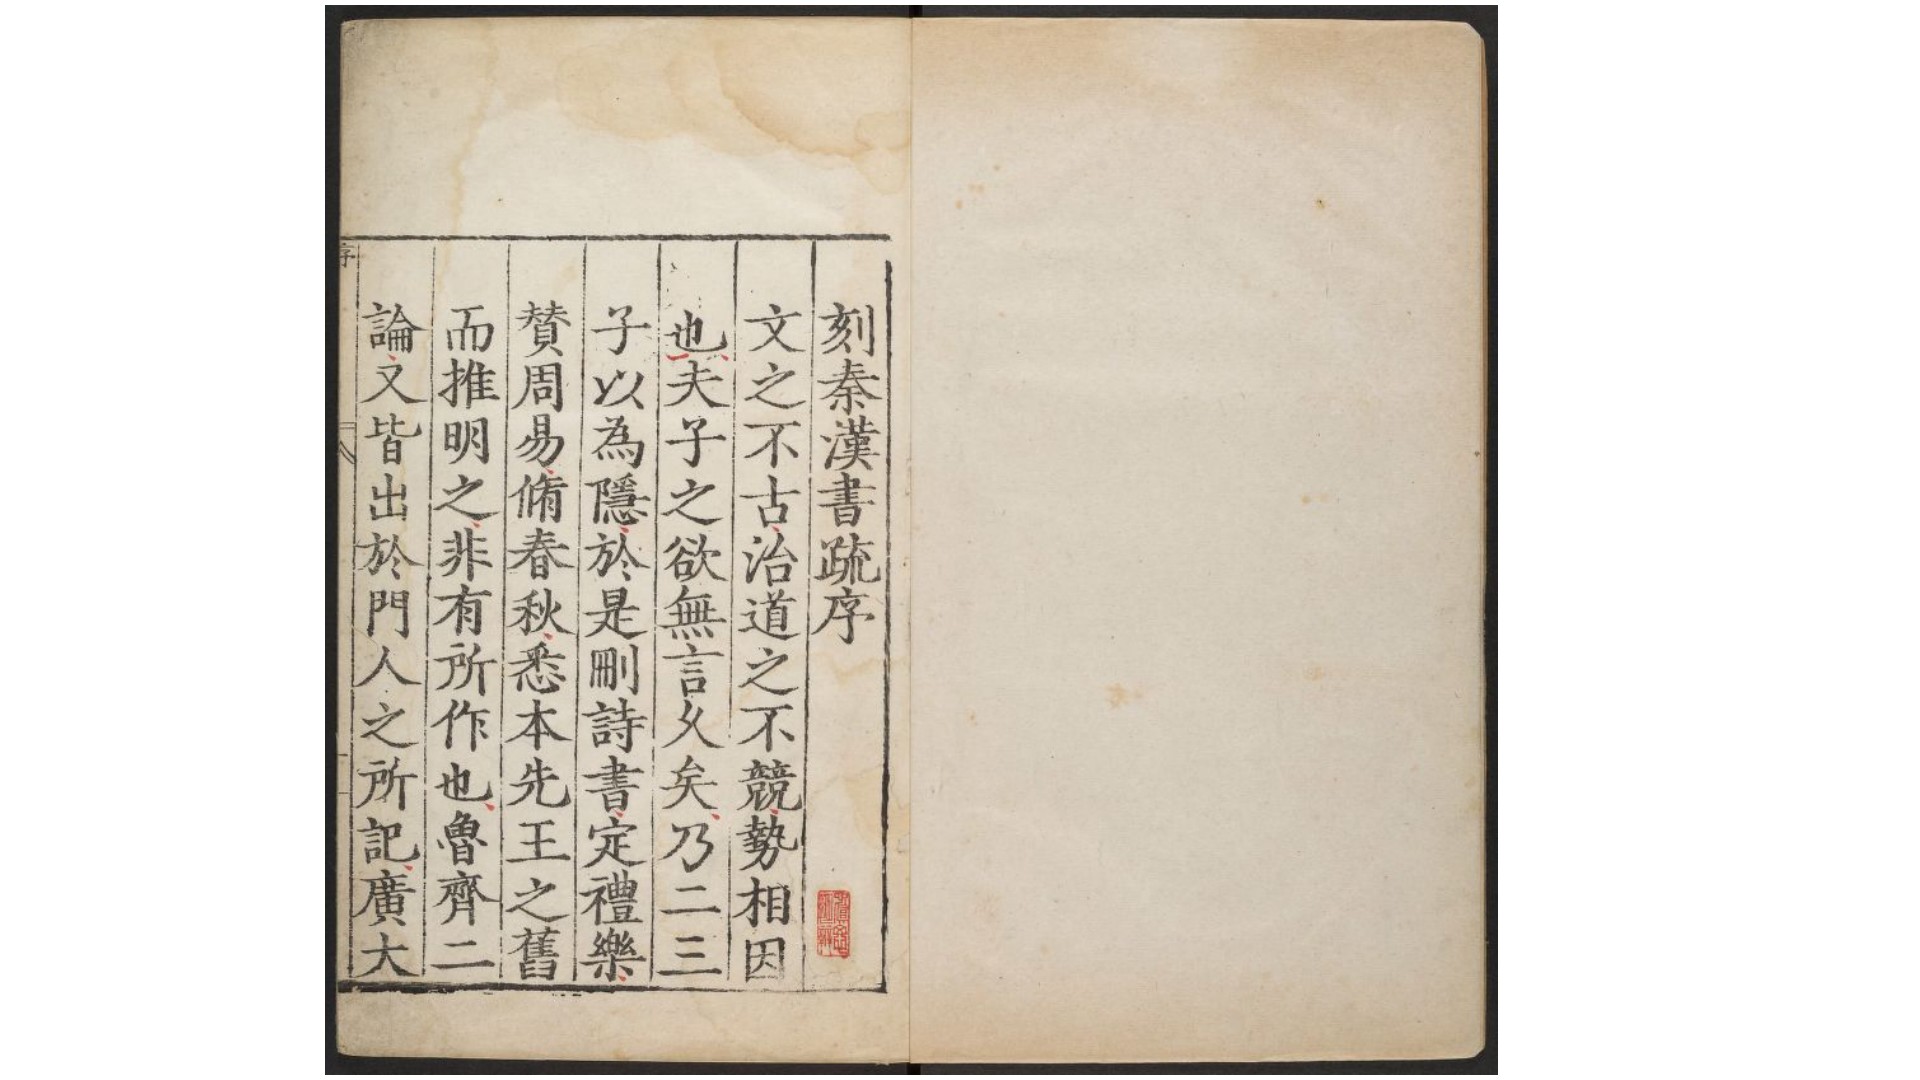 刻秦漢書疏序
文之不古治道之不競勢相因
也夫子之欲無言久矣乃二三
子以為隱於是刪詩書定禮樂
賛周易脩春秋悉本先王之舊
而推明之非有所作也魯齊二
論又皆出於門人之所記廣大
序